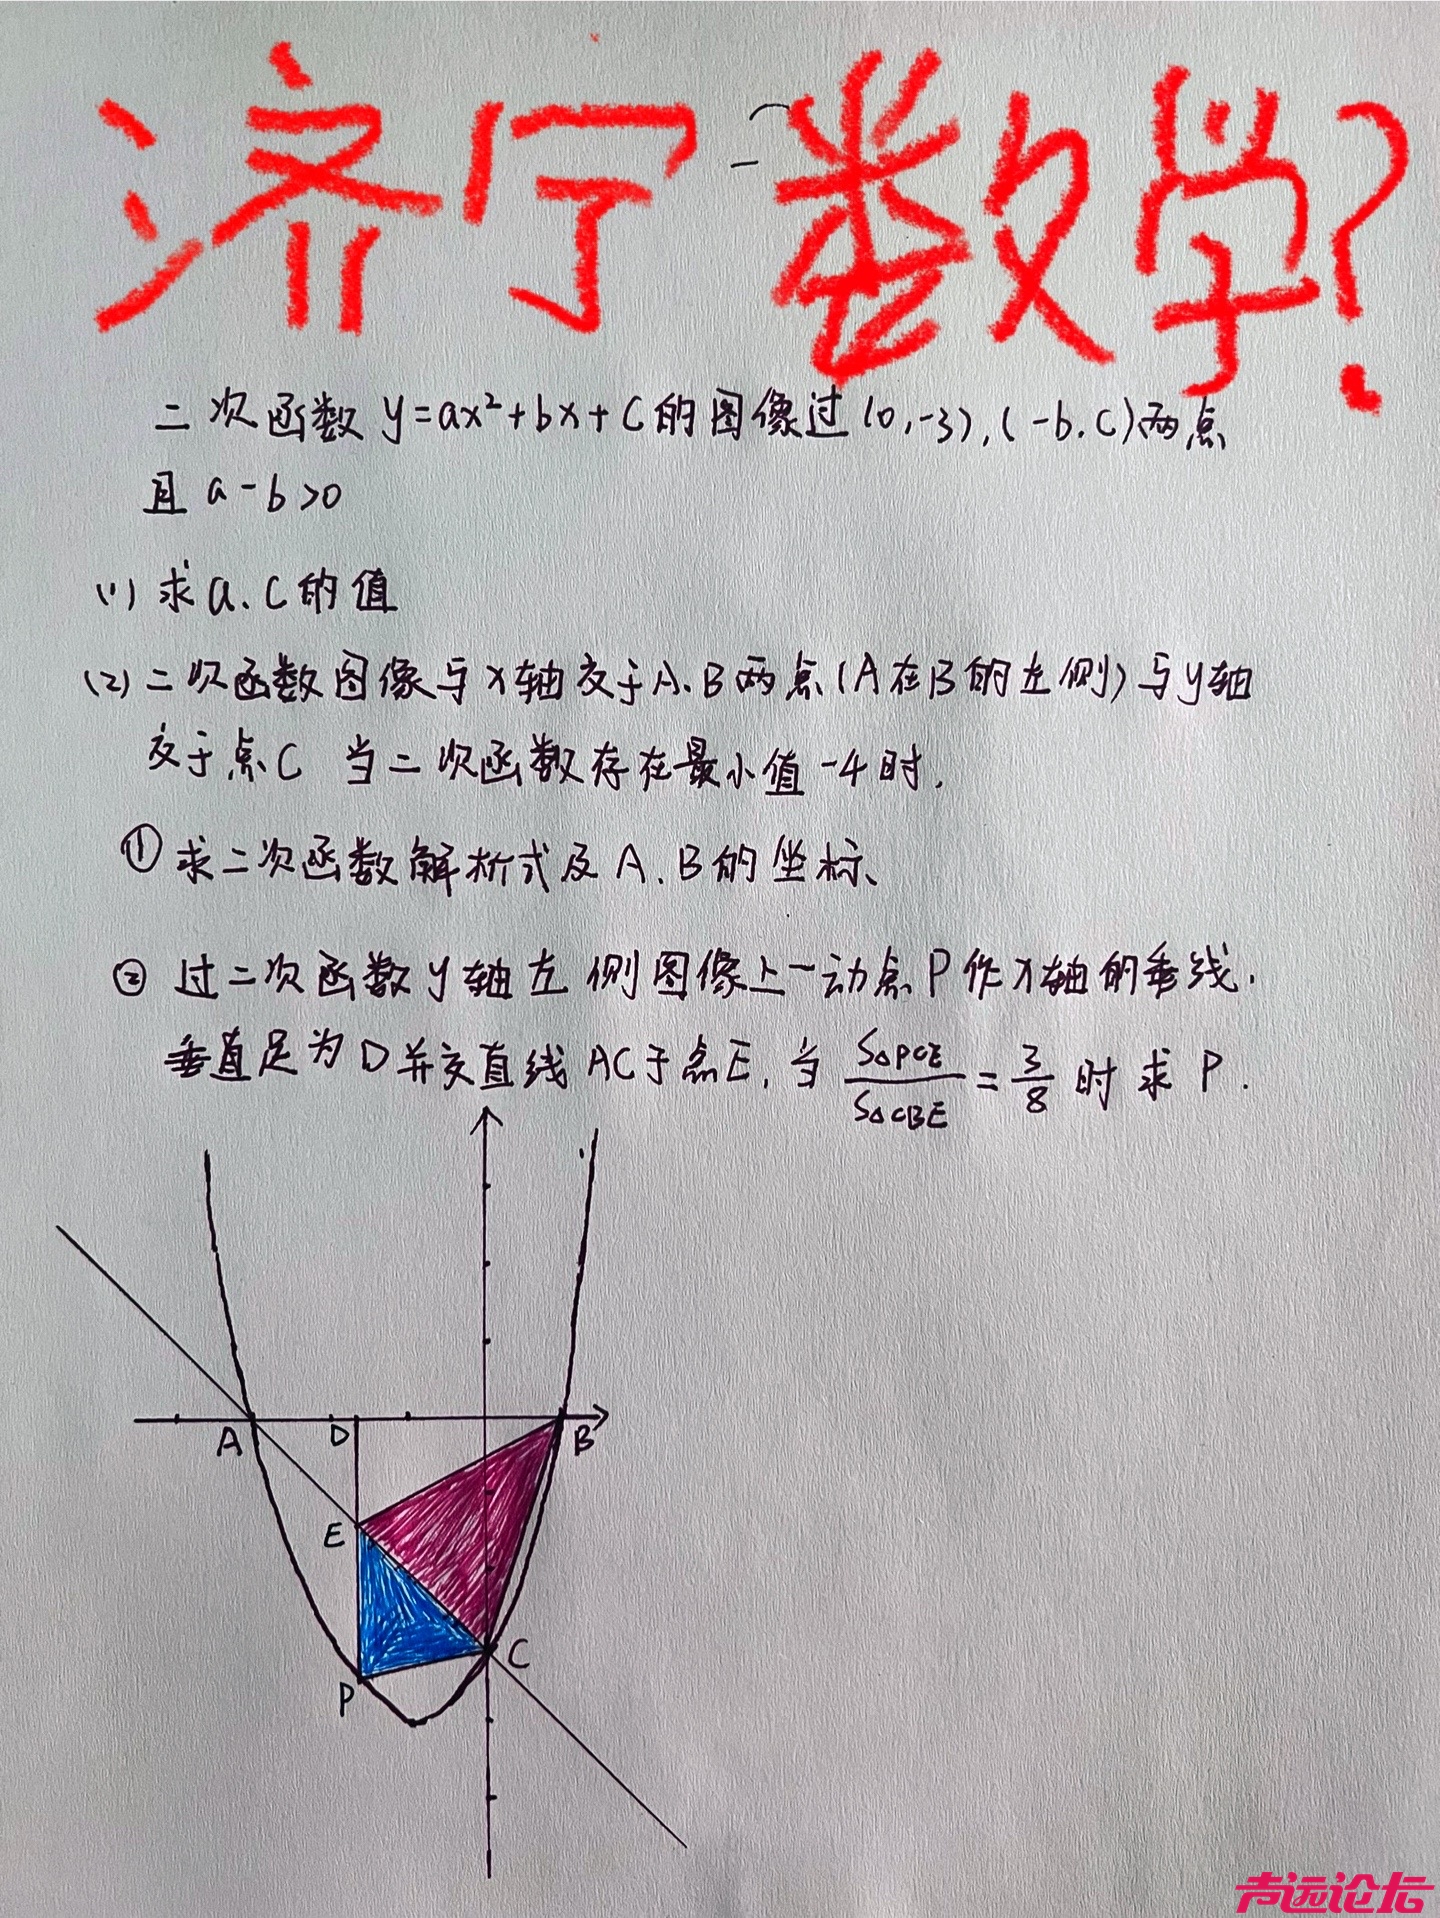 济宁数学?
二次函数 y=ax²+bx+C的图像过(0,-3),(-b,C)两点
且 a-b>0
(1) 求a、C的值
(2) 二次函数图像与x轴交于A、B两点(A在B的左侧)与y轴
交于点C 当二次函数存在最小值-4时,
① 求二次函数解析式及A、B的坐标、
② 过二次函数y轴左侧图像上一动点P作x轴的垂线,
垂直足为D并交直线AC于点E,当 S△PCE/S△CBE = 3/8 时求P.
A
D
B
E
C
P
声远论坛